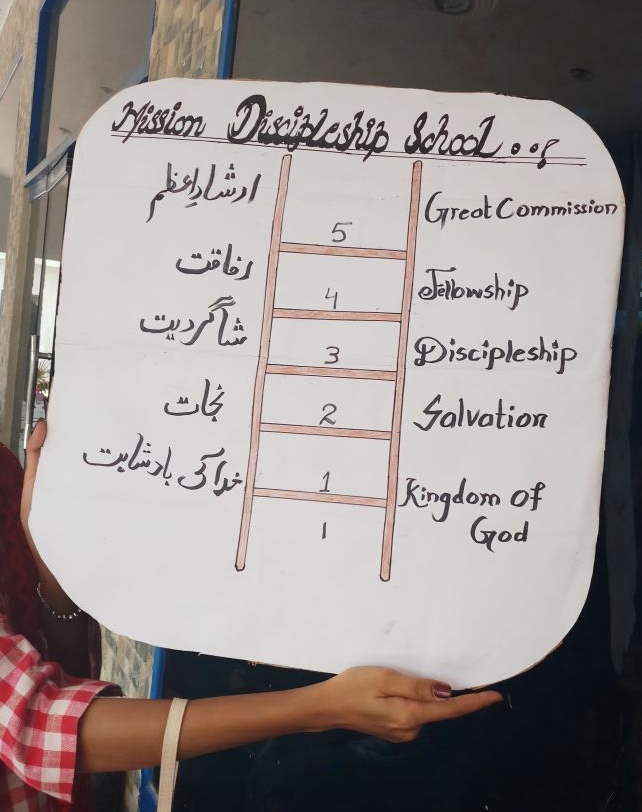 Mission Discipleship School...
ارشادِاعظم
5
Great Commission
رفاقت
4
Fellowship
شاگردیت
3
Discipleship
نجات
2
Salvation
خدا کی بادشاہت
1
Kingdom of
God
1